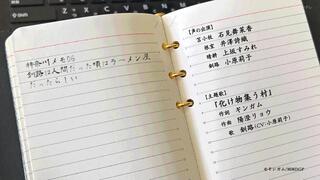 神奈川メモ06
釧路は人間だった頃はラーメン屋
だったらしい
【声の出演】
苫小牧 石見舞菜香
根室 井澤詩織
晴耕 上坂すみれ
釧路 小原莉子
【主題歌】
『化け物集う村』
作詞 キンガム
作曲 陽澄リョウ
歌 釧路(CV:小原莉子)